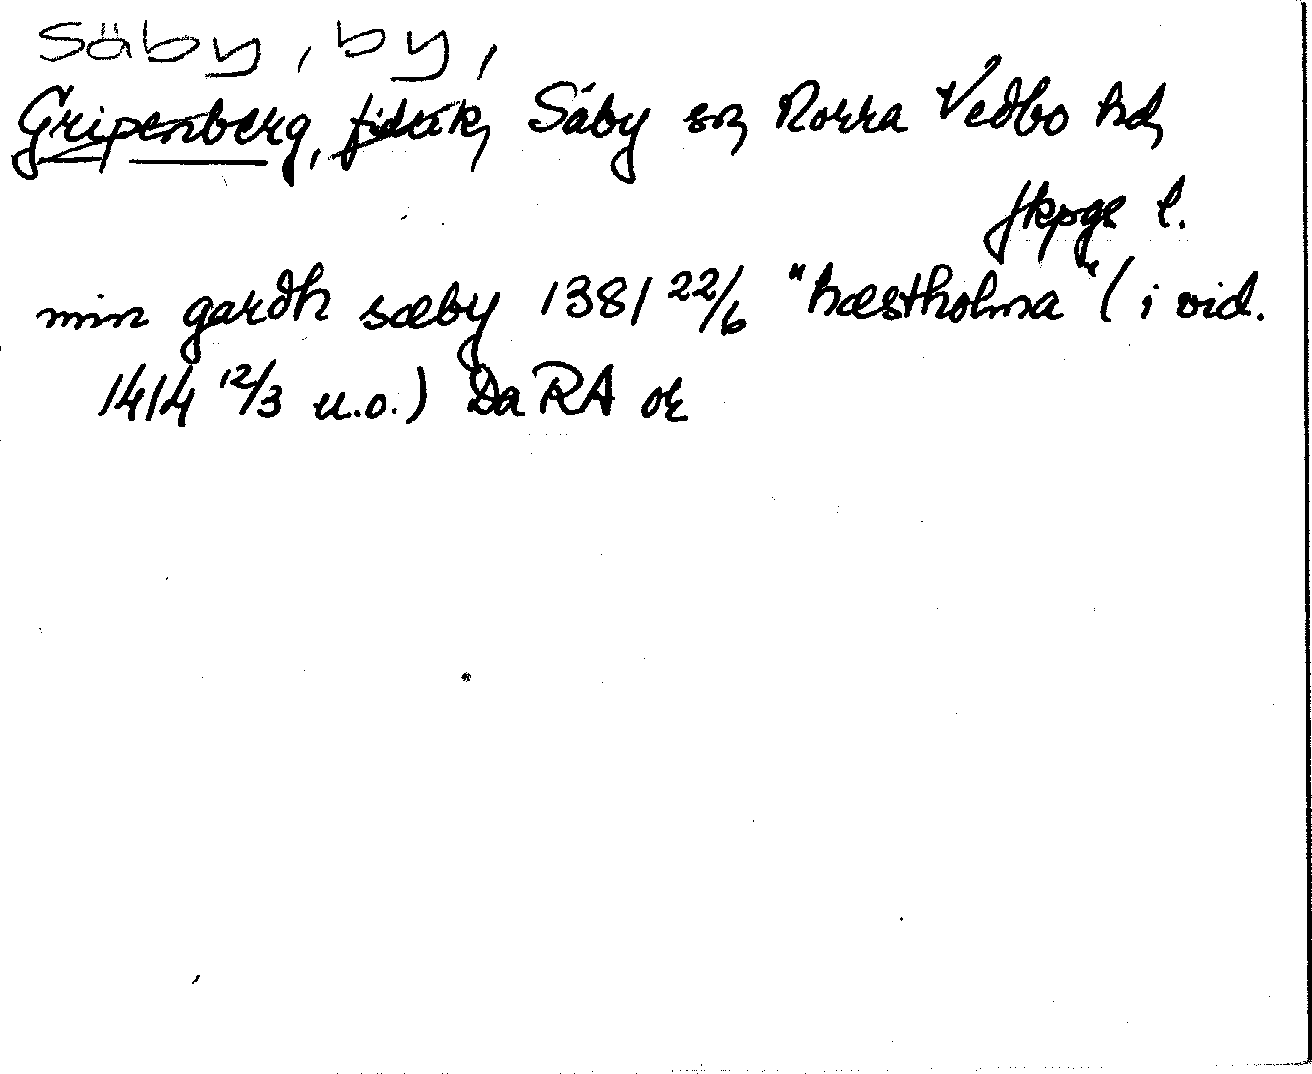 Säby, by,
Gripenberg, fideik, Säby sn, Norra Vedbo hd,
Jkpgs l.
min gardh sæby 1381 22/6 "hæstholma" (i vid.
1414 12/3 u.o.) Da RA or